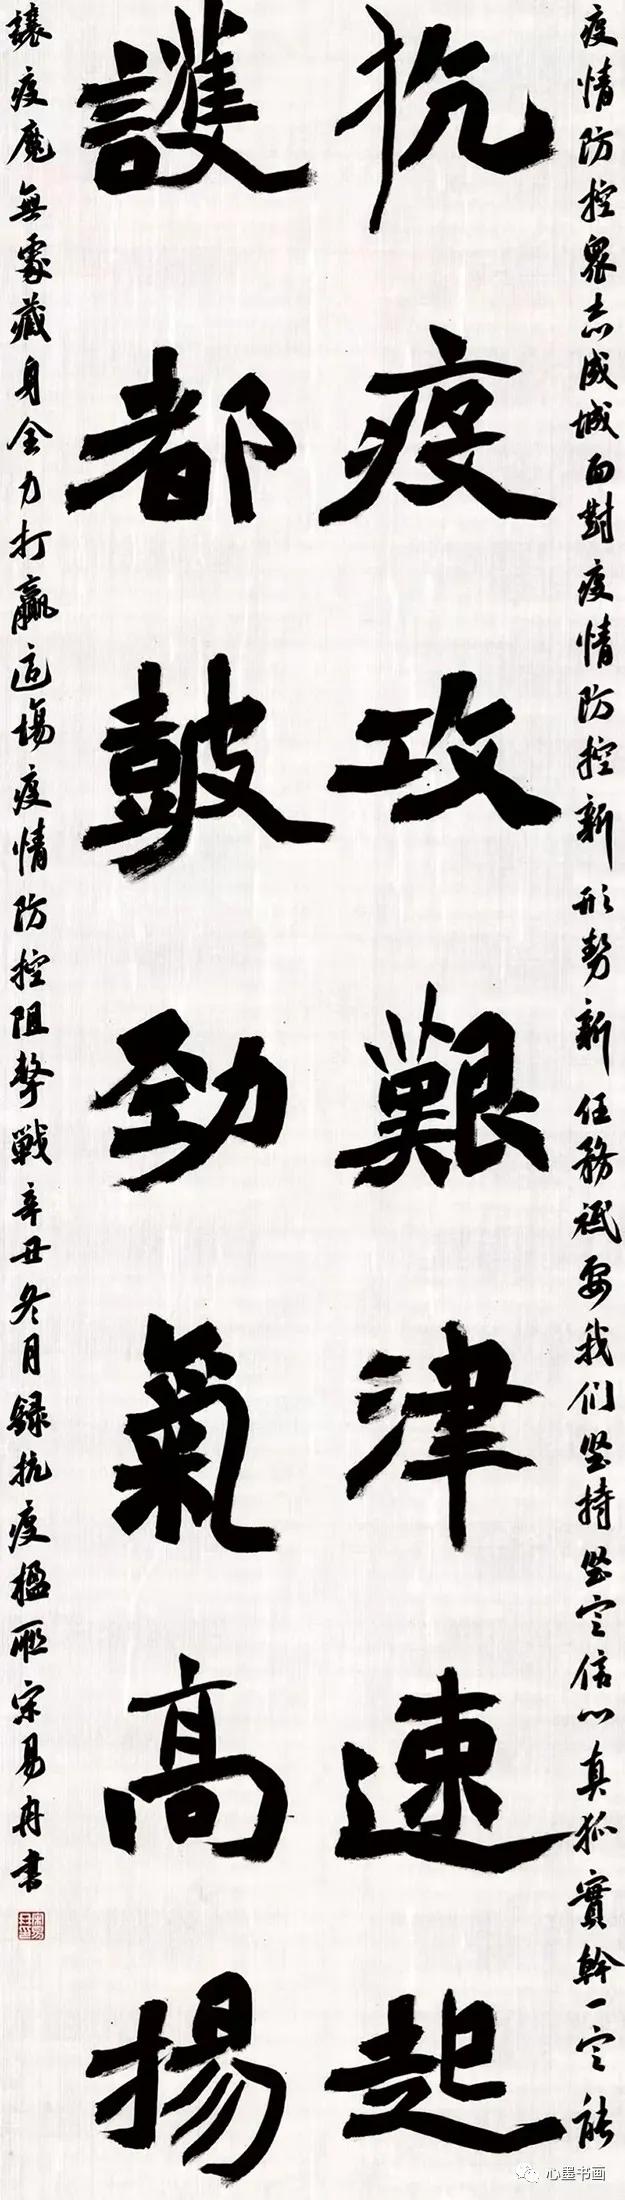 疫情防控眾志成城面對疫情防控新形勢新任務祗要我们堅持堅定信心真抓實幹一定能
抗疫攻艱津速起
護都皷勁氣高揚
讓疫魔無處藏身全力打贏這場疫情防控阻擊戰辛丑冬月録抗疫楹聯宋易冉書
心墨书画